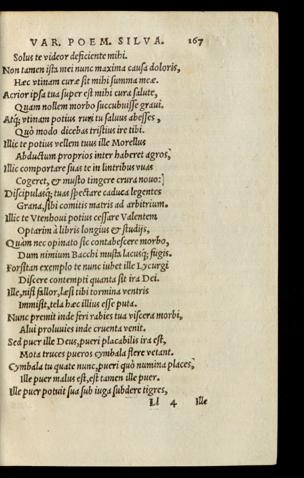 VAR. POEM. SILVA. 167
Solus te videor deficiente mihi.
Non tamen ista mei nunc maxima causa doloris,
Hæc vtinam curæ sit mihi summa meæ.
Acrior ipsa tua super est mihi cura salute,
Quam nollem morbo succubuisse graui.
Atq; vtinam potius ruri tu saluus abesses,
Quò modo dicebas tristius ire tibi.
Illic te potius vellem tuus ille Morellus
Abductum proprios inter haberet agros,
Illic comportare suas te in lintribus vuas
Cogeret, & musto tingere crura nouo:
Discipulasq; tuas spectare caduca legentes
Grana, sibi comitis matris ad arbitrium.
Illic te Vtenhoui potius cessare Valentem
Optarim à libris longius & studijs,
Quàm nec opinato sic contabescere morbo,
Dum nimium Bacchi musta lacusq; fugis.
Forsitan exemplo te nunc iubet ille Lycurgi
Discere contempti quanta sit ira Dei.
Ille, nisi fallor, læsit tibi tormina ventris
Immisit, tela hæc illius esse puta.
Nunc premit inde feri rabies tua viscera morbi,
Alui proluuies inde cruenta venit.
Sed puer ille Deus, pueri placabilis ira est,
Mota truces pueros cymbala flere vetant.
Cymbala tu quate nunc, pueri quò numina places,
Ille puer malus est, est tamen ille puer.
Ille puer potuit sua sub iuga subdere tigres,
Ll 4 Ille